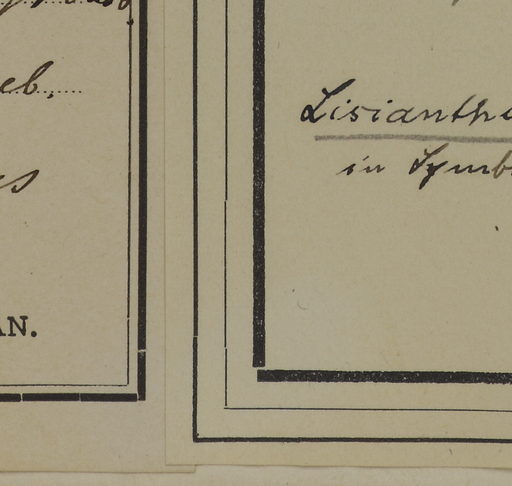 eb.
AN.
Lisianthu
in Symb